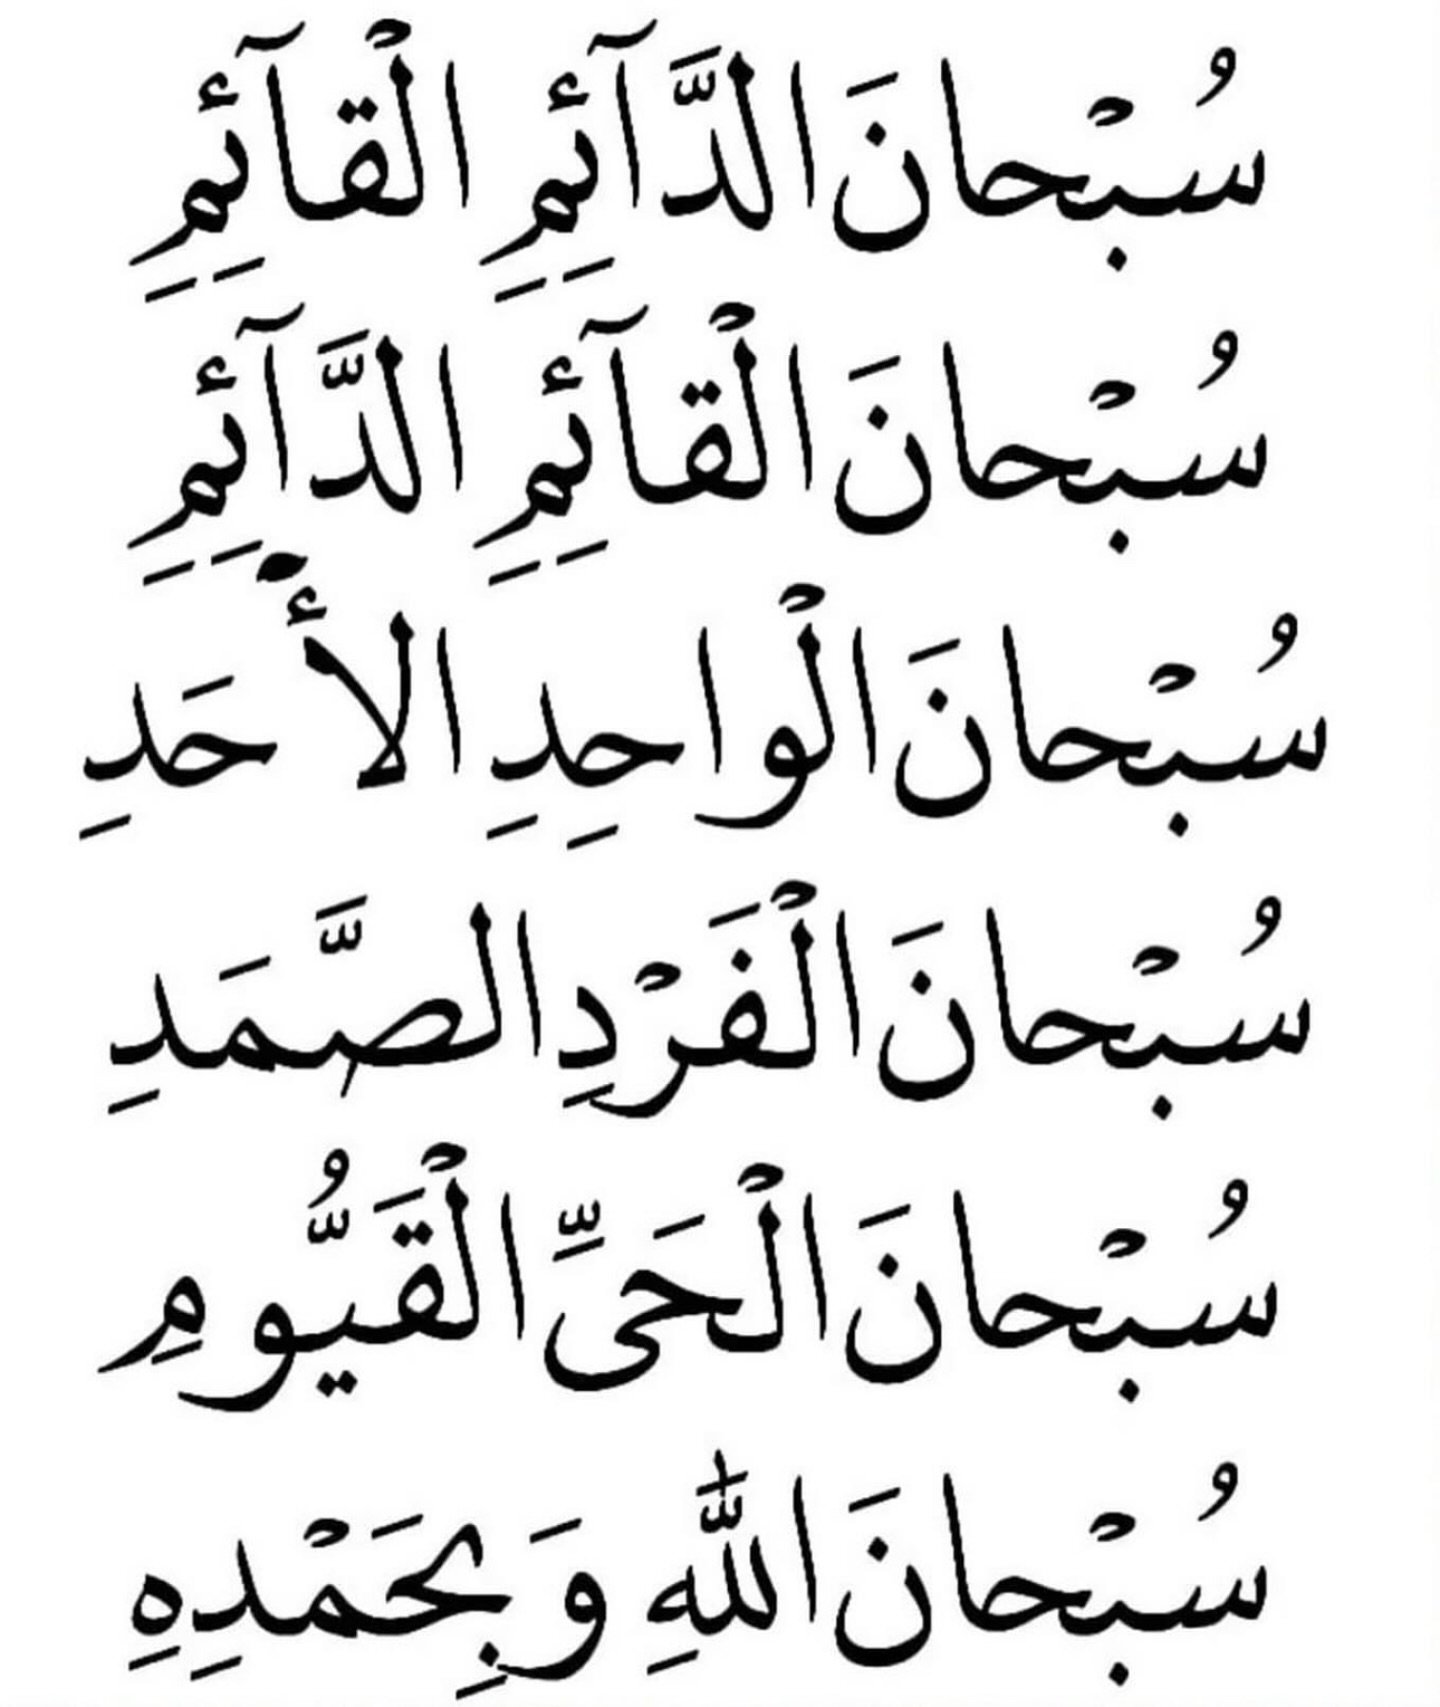 سُبْحانَ الدَّآئِمِ الْقآئِمِ
سُبْحانَ الْقآئِمِ الدَّآئِمِ
سُبْحانَ الْواحِدِ الْأَحَدِ
سُبْحانَ الْفَرْدِ الصَّمَدِ
سُبْحانَ الْحَىِّ الْقَيُّومِ
سُبْحانَ اللّٰهِ وَبِحَمْدِهِ